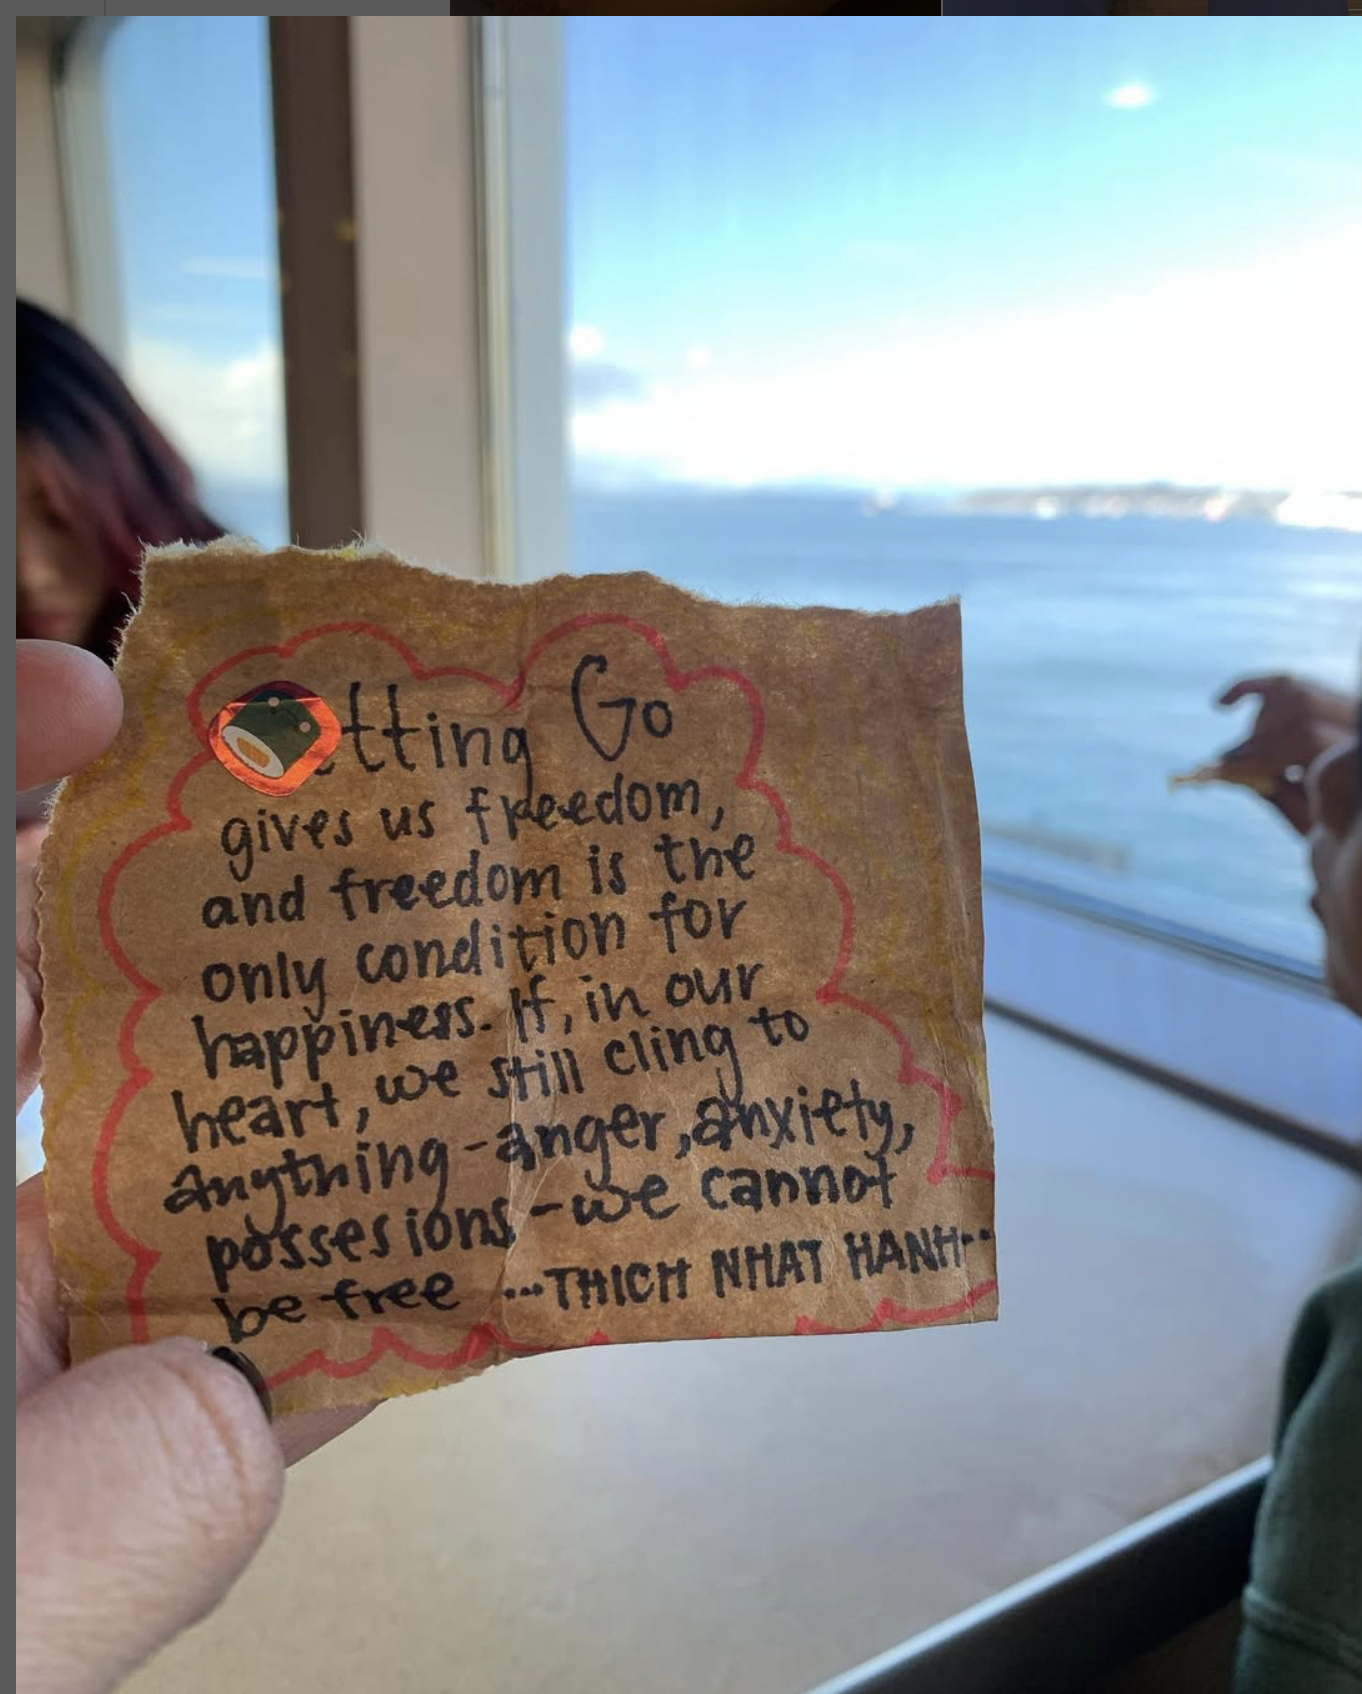 etting Go
gives us freedom,
and freedom is the
only condition for
happiness. If, in our
heart, we still cling to
anything - anger, anxiety,
possesions - we cannot
be free ...THICH NHAT HANH...